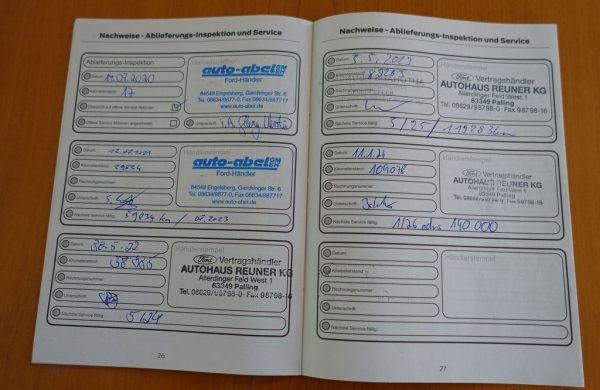 Nachweise - Ablieferungs-Inspektion und Service
Ablieferungs-Inspektion
Datum: 11.09.2020
Kilometerstand: 17
Überprüft auf offene Service-Aktionen
Offene Service-Aktionen abgearbeitet
Vertragspartner
auto-abel GMBH
Ford-Händler
84549 Engelsberg, Garchinger Str. 6
Tel. 08634/9877-0, Fax 08634/987717
www.auto-abel.de
Unterschrift i.A.
Datum: 12.07.2021
Kilometerstand: 29834
Rechnungsnummer:
Unterschrift:
Händlerstempel
auto-abel GMBH
Ford-Händler
84549 Engelsberg, Garchinger Str. 6
Tel. 08634/9877-0, Fax 08634/987717
www.auto-abel.de
Nächste Service fällig: 59834 km / 07.2023
Datum:
Kilometerstand:
Rechnungsnummer:
Unterschrift:
Händlerstempel
Ford Vertragshändler
AUTOHAUS REUNER KG
Allerdinger Feld West 1
83349 Palling
Tel. 08629/98798-0 · Fax 98798-16
Nächste Service fällig: 5/24
26
Nachweise - Ablieferungs-Inspektion und Service
Datum: 8.5.2023
Kilometerstand:
Rechnungsnummer:
Unterschrift:
Händlerstempel
Ford Vertragshändler
AUTOHAUS REUNER KG
Allerdinger Feld West 1
83349 Palling
Tel. 08629/98798-0 · Fax 98798-16
Nächste Service fällig: 5/25 /
Datum: 11.1.24
Kilometerstand: 109078
Rechnungsnummer:
Unterschrift:
Händlerstempel
Ford Vertragshändler
AUTOHAUS REUNER KG
Allerdinger Feld West 1
83349 Palling
Nächste Service fällig: 1/26 oder 140 000
Datum:
Kilometerstand:
Rechnungsnummer:
Unterschrift:
Händlerstempel
Nächste Service fällig:
27